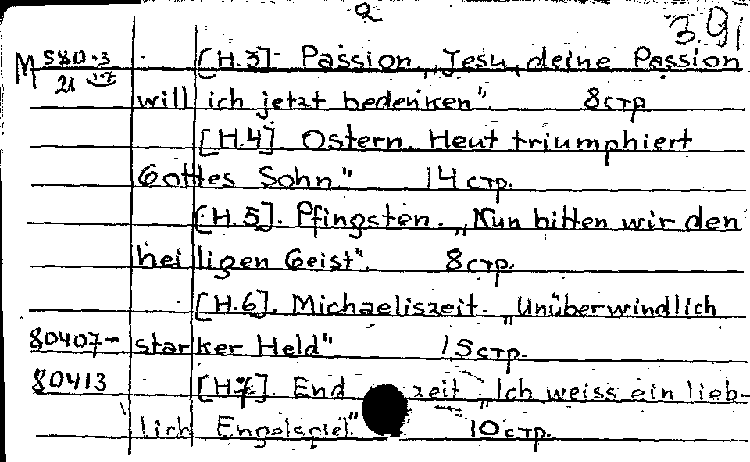 2
3.91
M 580-3 [H.3]. Passion „Jesu, deine Passion
21
will ich jetzt bedenken". 8 стр
[H.4]. Ostern. Heut triumphiert
Gottes Sohn." 14 стр.
[H.5]. Pfingsten. „Nun bitten wir den
heiligen Geist". 8 стр.
[H.6]. Michaeliszeit. „Unüberwindlich
80407- starker Held" 15 стр.
80413 [H.7]. End zeit „Ich weiss ein lieb-
lich Engelspiel" 10 стр.